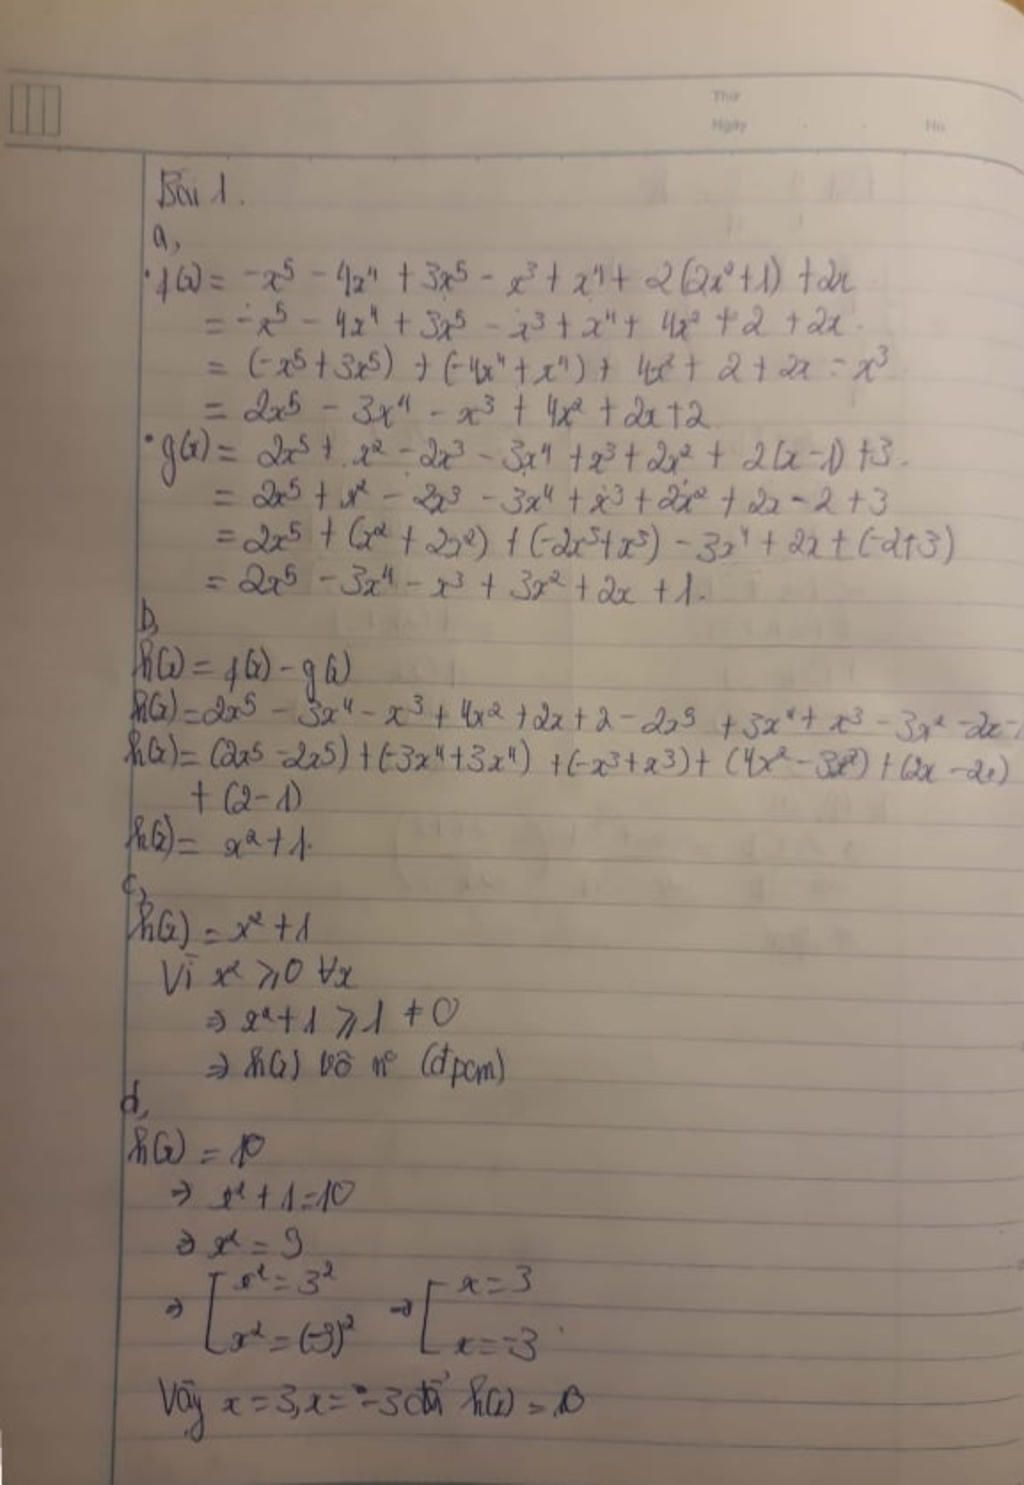 Thứ
Ngày
No
Bài 1.
a,
• f(x) = -x⁵ - 4x⁴ + 3x⁵ - x³ + x⁴ + 2(2x²+1) + 2x
= -x⁵ - 4x⁴ + 3x⁵ - x³ + x⁴ + 4x² + 2 + 2x.
= (-x⁵+3x⁵) + (-4x⁴+x⁴) + 4x² + 2 + 2x - x³
= 2x⁵ - 3x⁴ - x³ + 4x² + 2x+2
• g(x) = 2x⁵ + x² - 2x³ - 3x⁴ + x³ + 2x² + 2(x-1) + 3.
= 2x⁵ + x² - 2x³ - 3x⁴ + x³ + 2x² + 2x - 2 + 3
= 2x⁵ + (x² + 2x²) + (-2x³+x³) - 3x⁴ + 2x + (-2+3)
= 2x⁵ - 3x⁴ - x³ + 3x² + 2x + 1.
b,
h(x) = f(x) - g(x)
h(x) = 2x⁵ - 3x⁴ - x³ + 4x² + 2x + 2 - 2x⁵ + 3x⁴ + x³ - 3x² - 2x -
h(x) = (2x⁵ - 2x⁵) + (-3x⁴+3x⁴) + (-x³+x³) + (4x² - 3x²) + (2x - 2x)
+ (2-1)
h(x) = x² + 1.
c,
h(x) = x² + 1
Vì x² ⩾ 0 ∀x
⇒ x² + 1 ⩾ 1 ≠ 0
⇒ h(x) vô nº (đpcm)
d,
h(x) = 10
⇒ x² + 1 = 10
⇒ x² = 9
⇒ [ x² = 3² → [ x = 3
x² = (-3)² x = -3.
Vậy x = 3, x = -3 để h(x) = 10